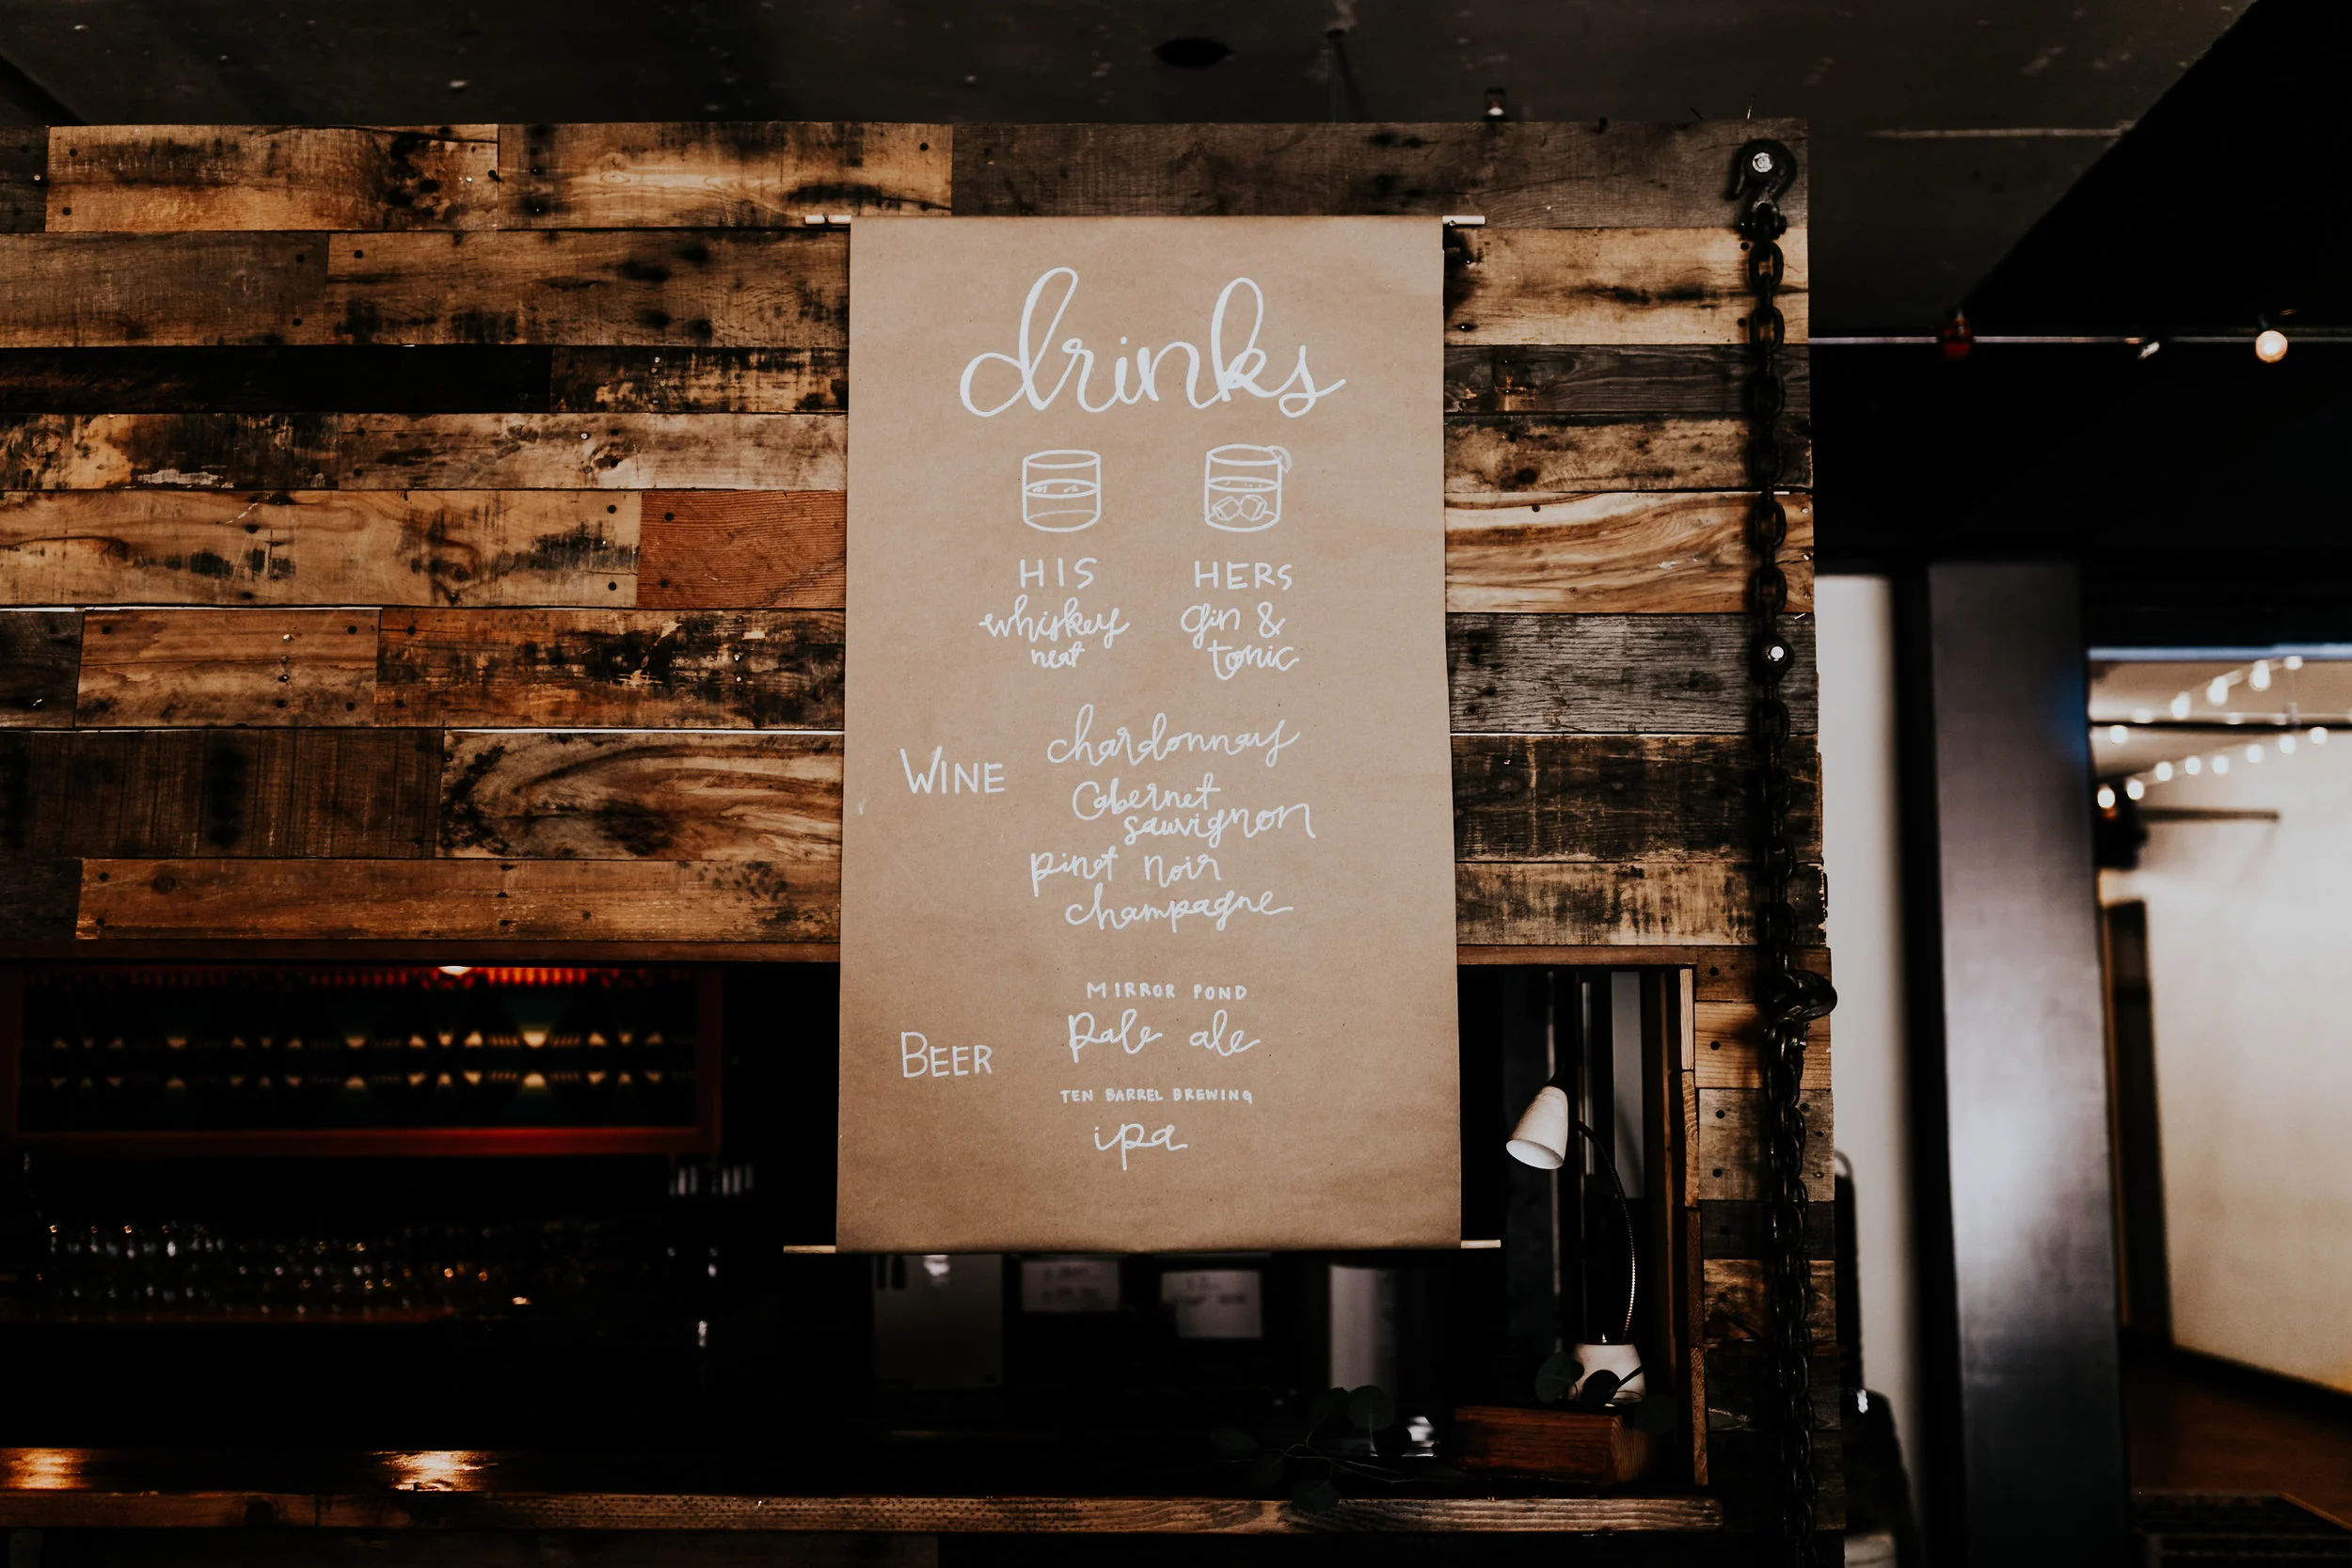 drinks
HIS HERS
whiskey gin &
neat tonic
chardonnay
WINE
Cabernet
sauvignon
pinot noir
champagne
MIRROR POND
pale ale
BEER
TEN BARREL BREWING
ipa